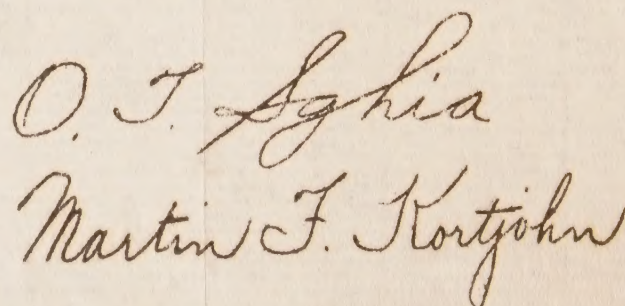 O. T. Sghia
Martin F. Kortjohn